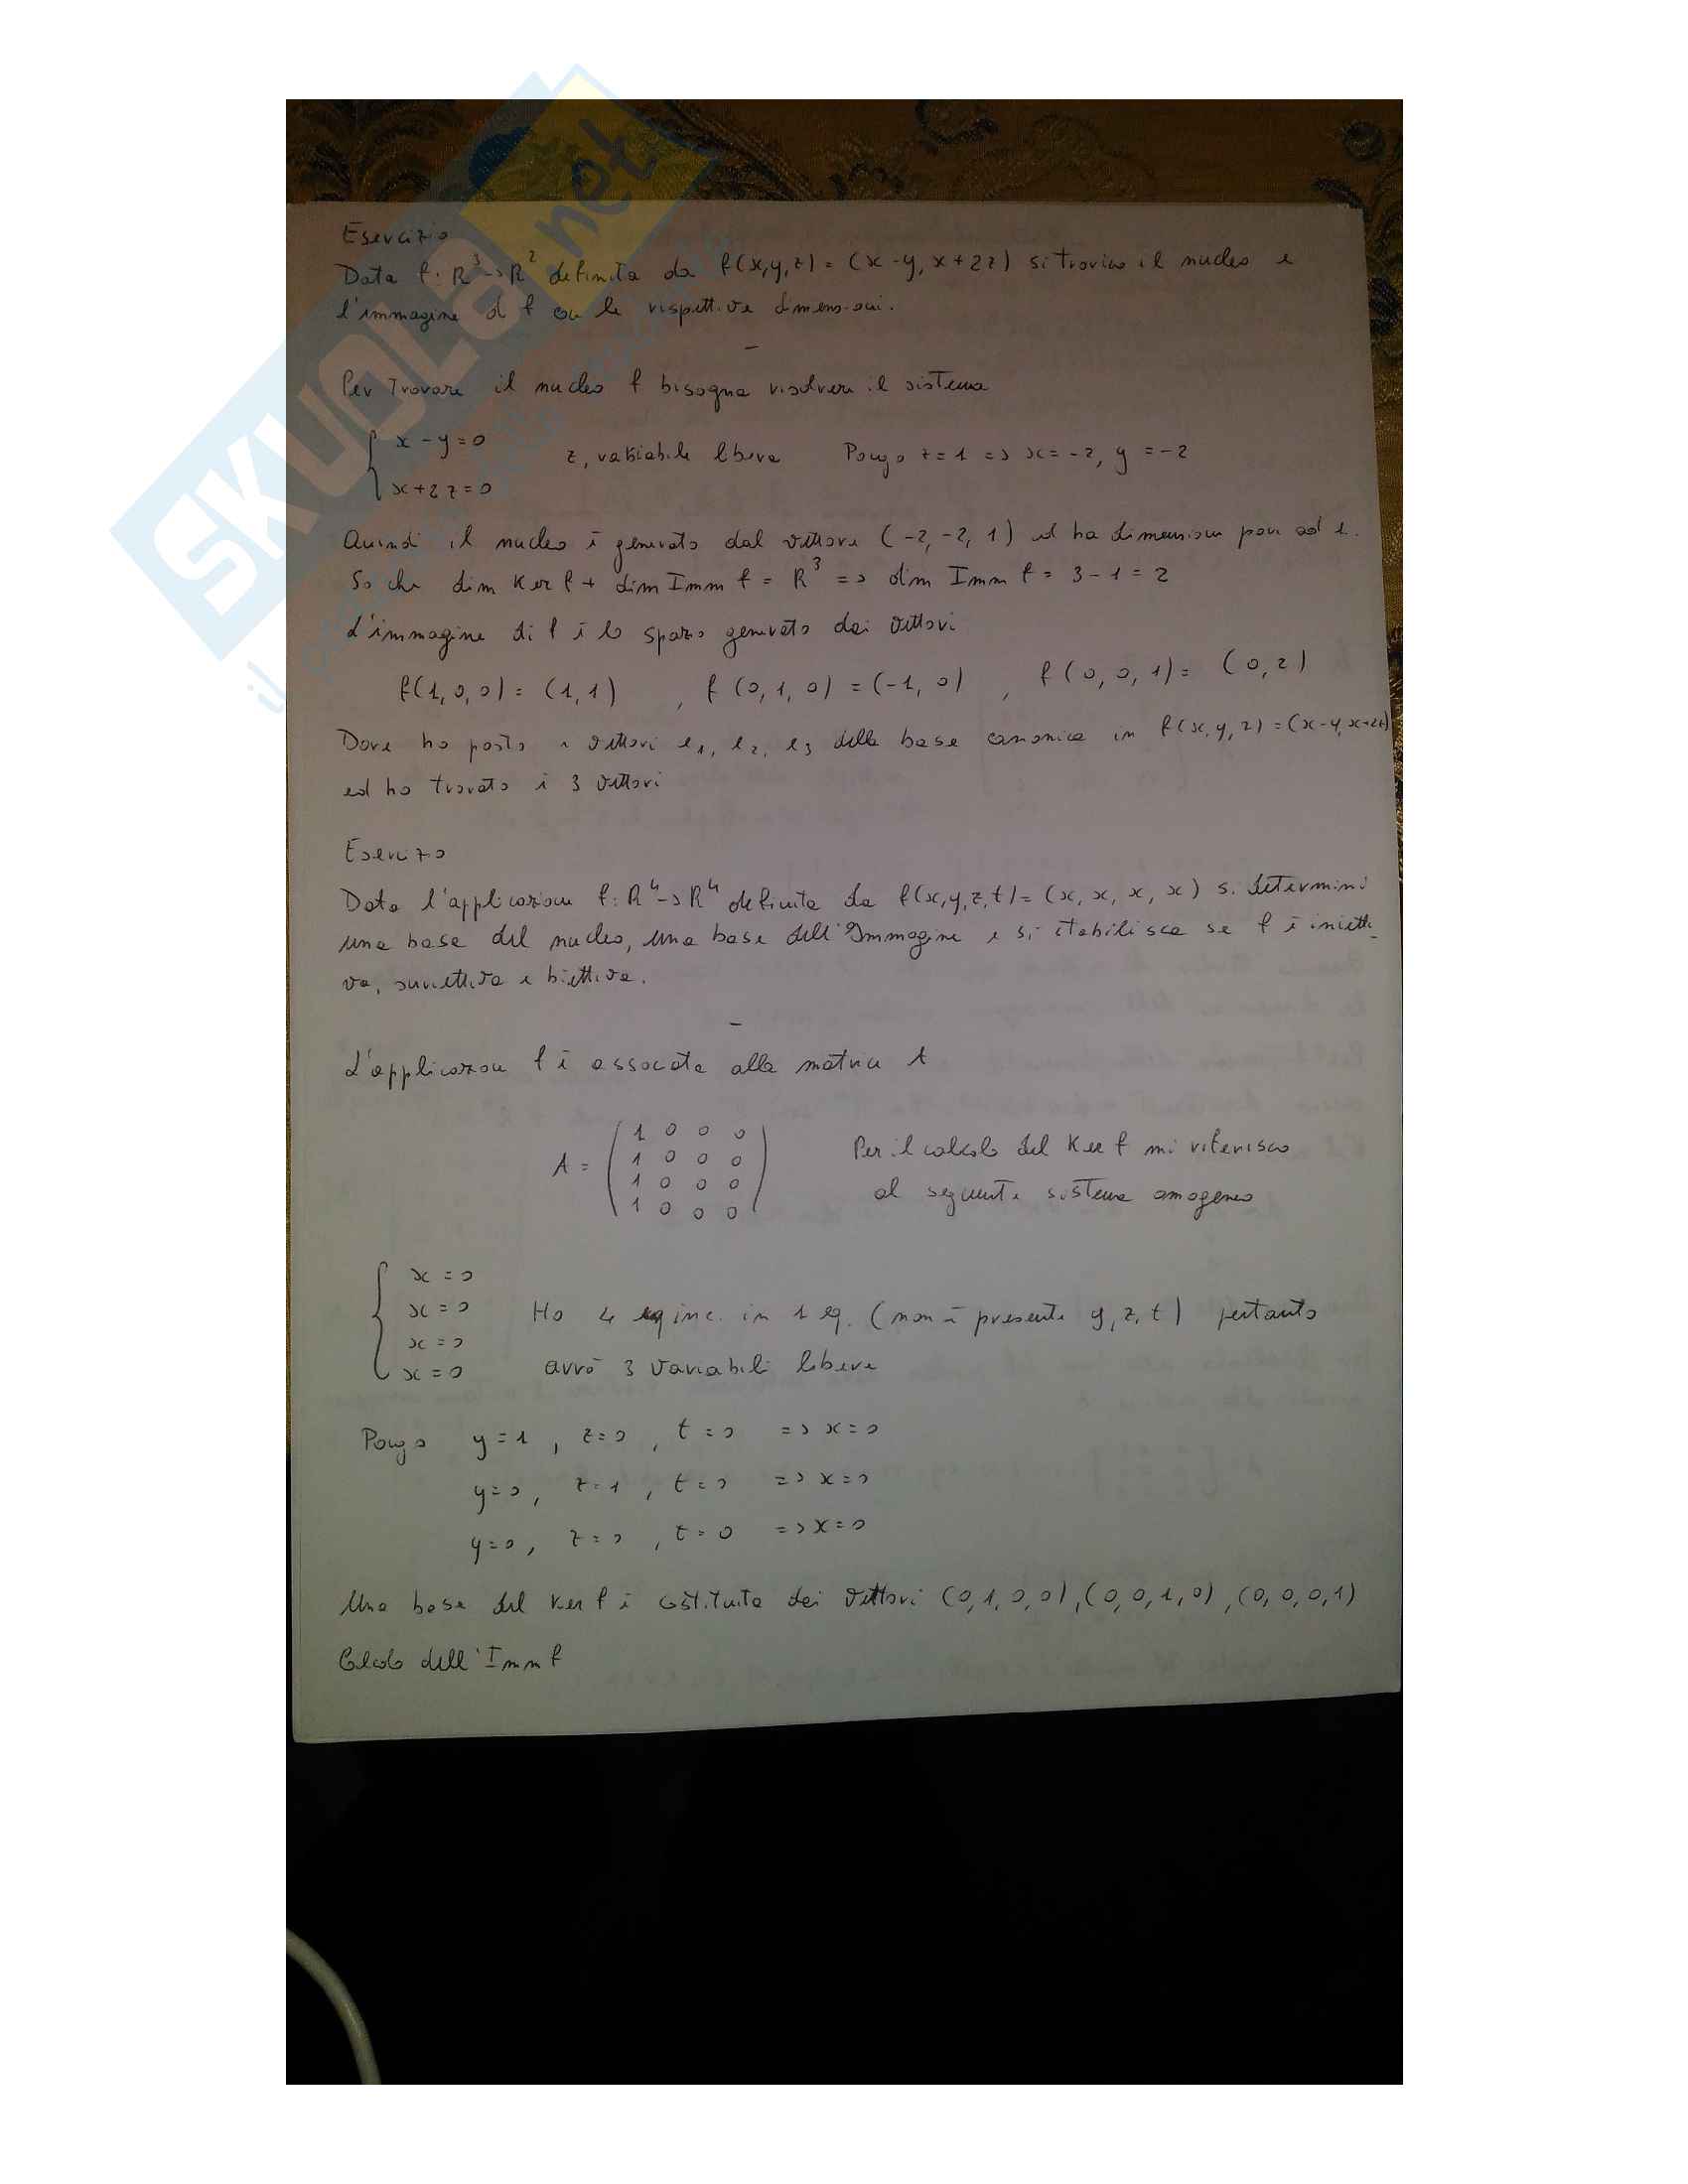 SKUOLa.net
Esercizio
Data f: R³->R² definita da f(x,y,z) = (x-y, x+2z) si trovino il nucleo e
l'immagine di f con le rispettive dimensioni.
-
Per trovare il nucleo f bisogna risolvere il sistema
x-y=0
z, variabile libera Pongo z=1 => x=-2, y=-2
x+2z=0
Quindi il nucleo è generato dal vettore (-2,-2, 1) ed ha dimensione pari ad 1.
So che dim Ker f + dim Imm f = R³ => dim Imm f = 3-1=2
L'immagine di f è lo spazio generato dai vettori
f(1,0,0)= (1,1) , f(0,1,0) =(-1,0) , f(0,0,1)= (0,2)
Dove ho posto i vettori e₁, e₂, e₃ della base canonica in f(x,y,z)=(x-y,x+2z)
ed ho trovato i 3 vettori
Esercizo
Data l'applicazione f: R⁴->R⁴ definita da f(x,y,z,t)=(x, x, x, x) si determini
una base del nucleo, una base dell'Immagine e si stabilisca se f è inietti_
va, suriettiva e biettiva.
-
L'applicazione f è associata alla matrice A
A = (1 0 0 0 Per il calcolo del Ker f mi riferisco
1 0 0 0
1 0 0 0 al seguente sistema omogeneo
1 0 0 0)
x=0
x=0 Ho 4 eq inc. in 1 eq. (non è presente y,z,t) pertanto
x=0
x=0 avrò 3 variabili libere
Pongo y=1 , z=0 , t=0 => x=0
y=0, z=1 , t=0 => x=0
y=0, z=0 , t=0 => x=0
Una base del Ker f è costituita dai vettori (0,1,0,0),(0,0,1,0),(0,0,0,1)
Calcolo dell'Imm f